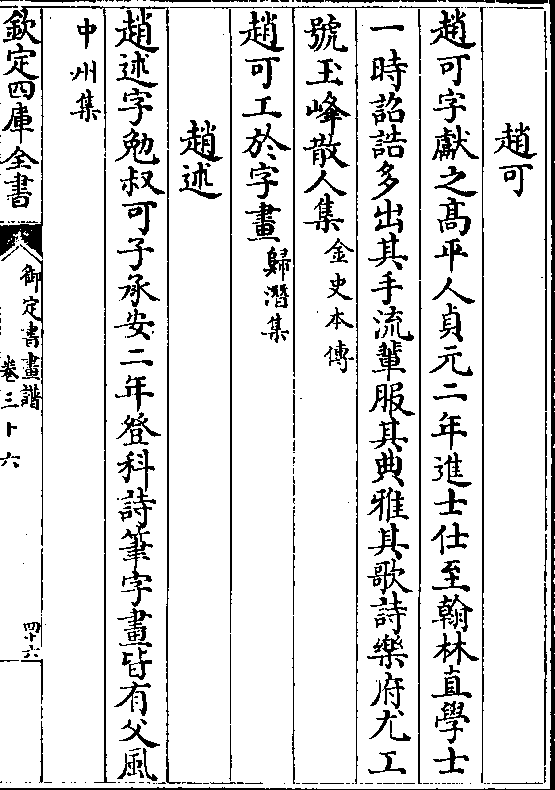 趙可
趙可字獻之高平人貞元二年進士仕至翰林直學士
一時詔誥多出其手流輩服其典雅其歌詩樂府尤工
號玉峰散人集金史本傳
趙可工於字畫歸潛集
趙述
趙述字勉叔可子承安二年登科詩筆字畫皆有父風
中州集
欽定四庫全書
御定書畫譜
卷三十六
四十六